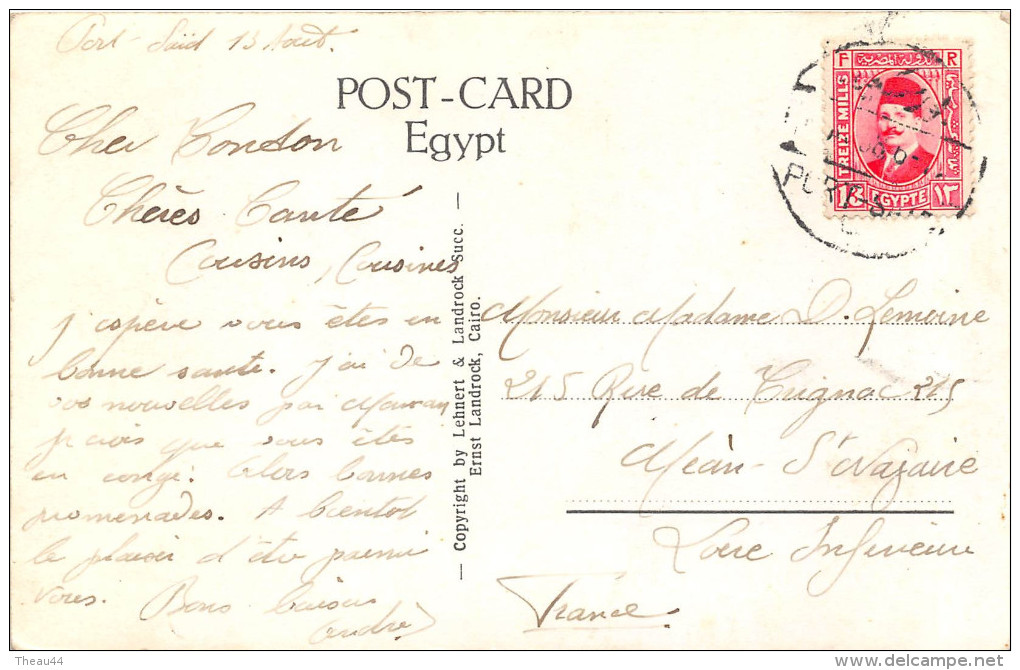 Port-Saïd 13 Aout.
POST-CARD
Egypt
Cher Tonton
Chères Tante
Cousins, Cousines
J'espère vous êtes en
bonne santé. J'ai de
vos nouvelles par Maman
je vois que vous êtes
en congé. Alors bonnes
promenades. A bientot
le plaisir d'être parmi
vous. Bons baisers
André
— Copyright by Lehnert & Landrock Succ. —
Ernst Landrock, Cairo.
F R
الدولة المصرية
TREIZE MILLS
EGYPTE
١٣
PORT-SAID
Monsieur Madame D. Lemoine
215 Rue de Trignac 215
Méan-St Nazaire
Loire Inférieure
France
Theau44
delcampe.net